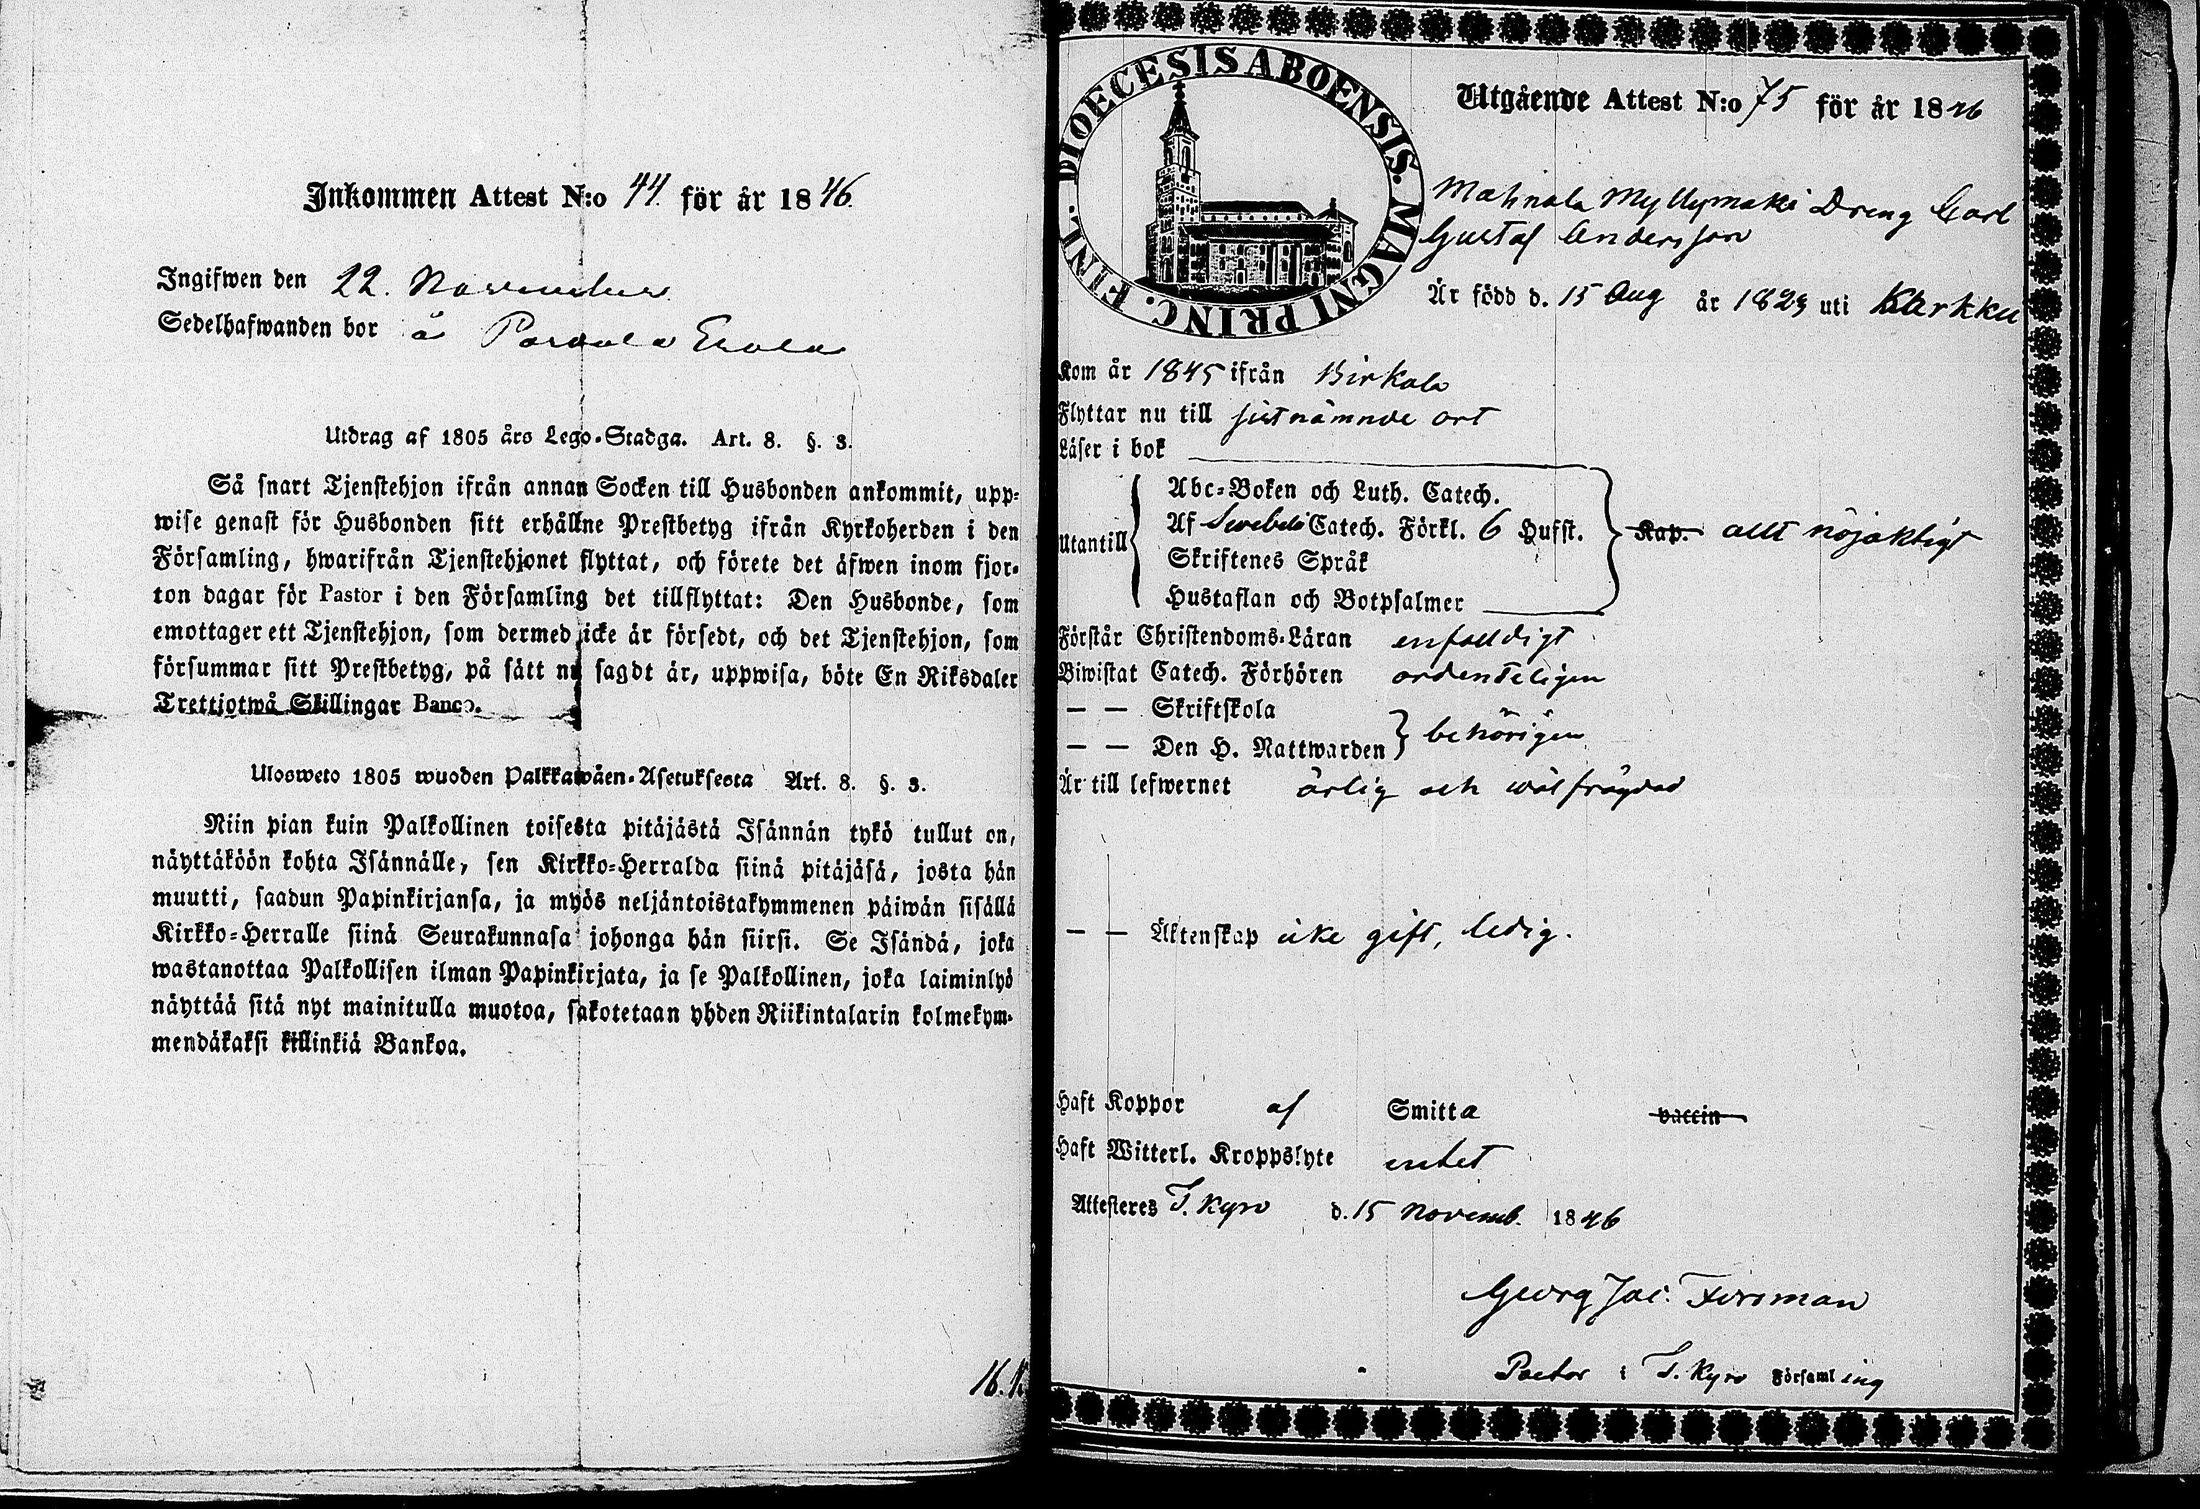 Inkommen Attest N:o 44. för år 1846.
Ingifwen den 22. November
Sedelhafwanden bor å
Utdrag af 1805 års Lego-Stadga. Art. 8. §. 3.
Så snart Tjenstehjon ifrån annan Socken till Husbonden ankommit, upp=
wise genast för Husbonden sitt erhållne Prestbetyg ifrån Kyrkoherden i den
Församling, hwarifrån Tjenstehjonet flyttat, och förete det äfwen inom fjor=
ton dagar för Pastor i den Församling det tillflyttat: Den Husbonde, som
emottager ett Tjenstehjon, som dermed icke är försedt, och det Tjenstehjon, som
försummar sitt Prestbetyg, på sätt nu sagdt är, uppwisa, böte En Riksdaler
Trettiotwå Skillingar Banco.
Ulosweto 1805 wuoden Palkkawäen-Asetuksesta Art. 8. §. 3.
Niin pian kuin Palkollinen toisesta pitäjästä Isännän tykö tullut on,
näyttäköön kohta Isännälle, sen Kirkko=Herralda siinä pitäjäsä, josta hän
muutti, saadun Papinkirjansa, ja myös neljäntoistakymmenen päiwän sisällä
Kirkko=Herralle siinä Seurakunnasa johonga hän siirsi. Se Isändä, joka
wastanottaa Palkollisen ilman Papinkirjata, ja se Palkollinen, joka laiminlyö
näyttää sitä nyt mainitulla muotoa, sakotetaan yhden Riikintalarin kolmekym=
mendäkaksi killinkiä Bankoa.
16.
DIOECESIS ABOENSIS. MAGNI PRINC. FINL.
Utgående Attest N:o 75 för år 1846
Mahnala Myllymäki Dreng Carl
Gustaf Andersson
Är född d. 15 Aug år 1823 uti Karkku
Kom år 1845 ifrån Birkala
Flyttar nu till sistnämnde ort
Läser i bok
Utantill
Abc=Boken och Luth. Catech.
Af Swebeli Catech. Förkl. 6 Hufst.
Skriftenes Språk
Hustaflan och Botpsalmer
Kap. allt nöjaktigt
Förstår Christendoms=Läran enfaldigt
Biwistat Catech. Förhören ordenteligen
— — Skriftskola
— — Den H. Nattwarden behörigen
Är till lefwernet ärlig och wäl frägdad
— — Äktenskap icke gift, ledig.
Haft Koppor af Smitta vaccin
Haft Witterl. Kroppslyte intet
Attesteres T. Kyro d. 15 Novemb. 1846
Georg Jac. Forsman
Pastor i T. Kyro Församling